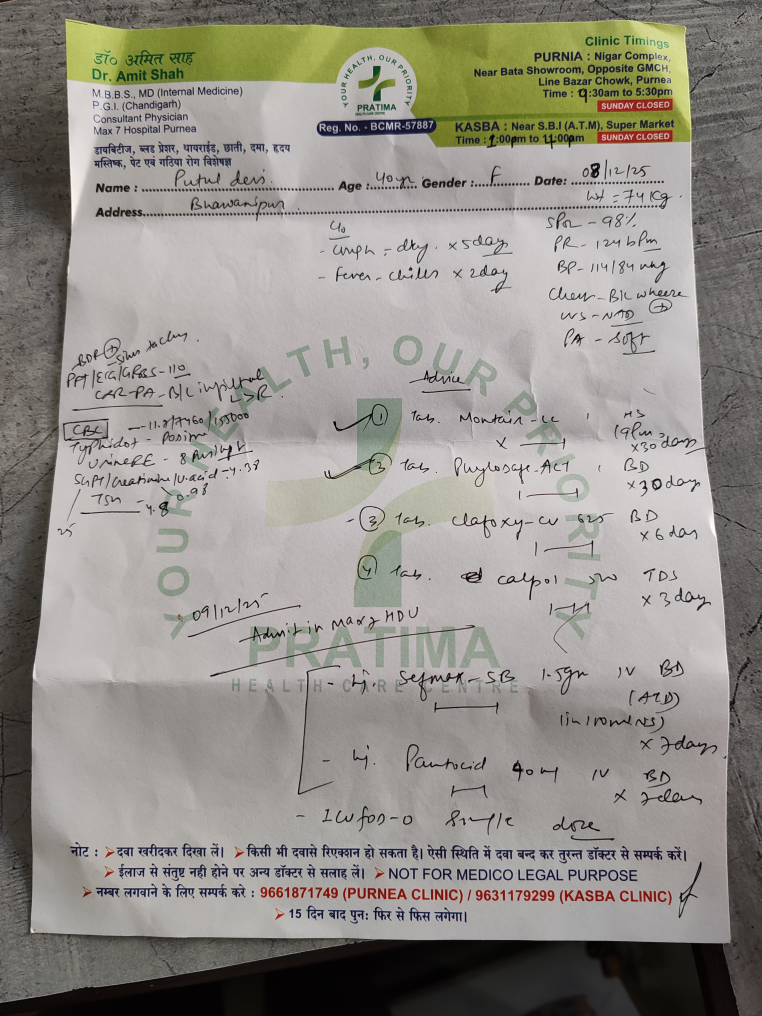 डॉ० अमित साह
Dr. Amit Shah
M.B.B.S., MD (Internal Medicine)
P.G.I. (Chandigarh)
Consultant Physician
Max 7 Hospital Purnea
डायबिटीज, ब्लड प्रेशर, थायराईड, छाती, दमा, हृदय
मस्तिष्क, पेट एवं गठिया रोग विशेषज्ञ
YOUR HEALTH, OUR PRIORITY
PRATIMA
HEALTH CARE CENTRE
Reg. No. - BCMR-57887
Clinic Timings
PURNIA : Nigar Complex,
Near Bata Showroom, Opposite GMCH,
Line Bazar Chowk, Purnea
Time : 9:30am to 5:30pm
SUNDAY CLOSED
KASBA : Near S.B.I (A.T.M), Super Market
Time : :00pm to :00pm
SUNDAY CLOSED
Name : Putul devi Age : 40yr Gender : F Date: 08/12/25
Address Bhawanipur
Wt = 74 Kg
C/o
- dry x 5 days
- Fever - chills x 2 days
SPO2 - 98%
PR - 124 bpm
BP - 114/84
Chest - B/L wheeze
- NAD
PA - Soft
BDR
Sinus tachy
PFT/ECG/GRBS - 110
CXR-PA - B/L
CBC - 11.2/7460/155000
Typhidot -
Urine RE - 8
SGPT/Creatinine/U.acid - 4.38
25
0.98
TSH - 4.8
Advice
① Tab. Montair-LC HS
(9pm)
x 30 days
② Tab. Phylosafe-ACT BD
x 30 days
- ③ Tab. Clafoxy-CV 625 BD
x 6 days
④ Tab. Calpol 500 TDS
x 3 days
09/12/25
Admit in Max 7 HDU
- Inj. Sefmax-SB 1.5gm IV BD
(in 100ml NS)
x 7 days
- Inj. Pantocid 40 mg IV BD
x 7 days
- Single dose
YOUR HEALTH, OUR PRIORITY
PRATIMA
HEALTH CARE CENTRE
नोट : दवा खरीदकर दिखा लें। किसी भी दवासे रिएक्शन हो सकता है। ऐसी स्थिति में दवा बन्द कर तुरन्त डॉक्टर से सम्पर्क करें।
ईलाज से संतुष्ट नही होने पर अन्य डॉक्टर से सलाह लें। NOT FOR MEDICO LEGAL PURPOSE
नम्बर लगवाने के लिए सम्पर्क करे : 9661871749 (PURNEA CLINIC) / 9631179299 (KASBA CLINIC)
15 दिन बाद पुनः फिर से फिस लगेगा।